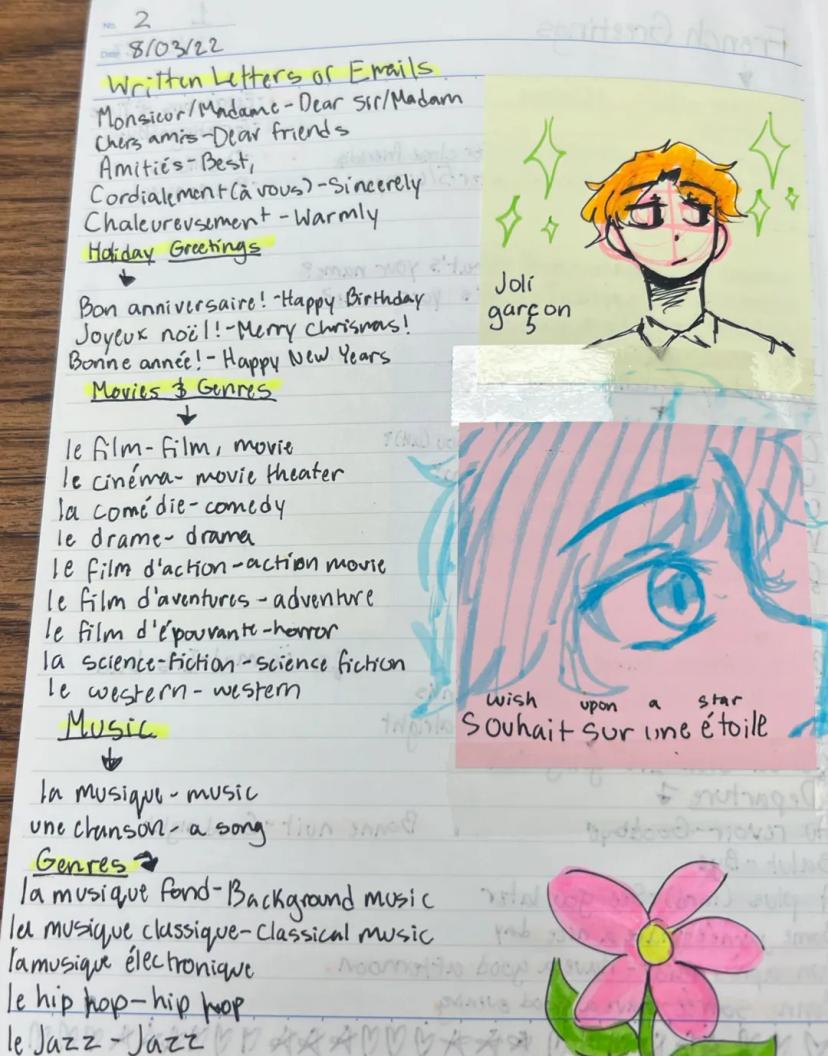 No. 2
Date 8/03/22
Written Letters or Emails
Monsieur/Madame-Dear Sir/Madam
Chers amis-Dear friends
Amitiés-Best,
Cordialement(à vous)-Sincerely
Chaleureusement-Warmly
Holiday Greetings
Bon anniversaire!-Happy Birthday
Joyeux noël!-Merry Chrismas!
Bonne année!-Happy New Years
Movies & Genres
le film-film, movie
le cinéma-movie theater
la comédie-comedy
le drame-drama
le film d'action-action movie
le film d'aventures-adventure
le film d'épouvante-horror
la science-fiction-science fiction
le western-western
Music
la musique-music
une chanson-a song
Genres
la musique fond-Background music
la musique classique-Classical music
la musique électronique
le hip hop-hip hop
le Jazz-Jazz
Joli
garçon
wish upon a star
Souhait sur une étoile